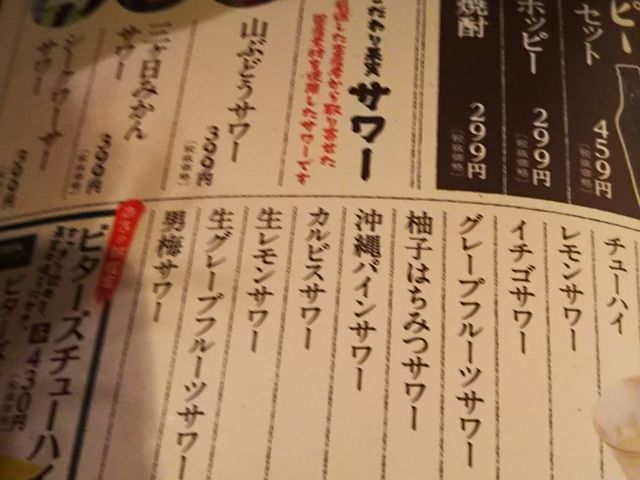 ビー
セット
459円
(税抜価格)
ホッピー
299円
(税抜価格)
焼酎
299円
(税抜価格)
こだわり果実
サワー
山ぶどうサワー
399円
(税抜価格)
三ヶ日みかん
サワー
399円
(税抜価格)
シークヮーサー
サワー
399円
チューハイ
レモンサワー
イチゴサワー
グレープフルーツサワー
柚子はちみつサワー
沖縄パインサワー
カルピスサワー
生レモンサワー
生グレープフルーツサワー
男梅サワー
ビターズチューハイ
430円
(税抜価格)
ビターズ